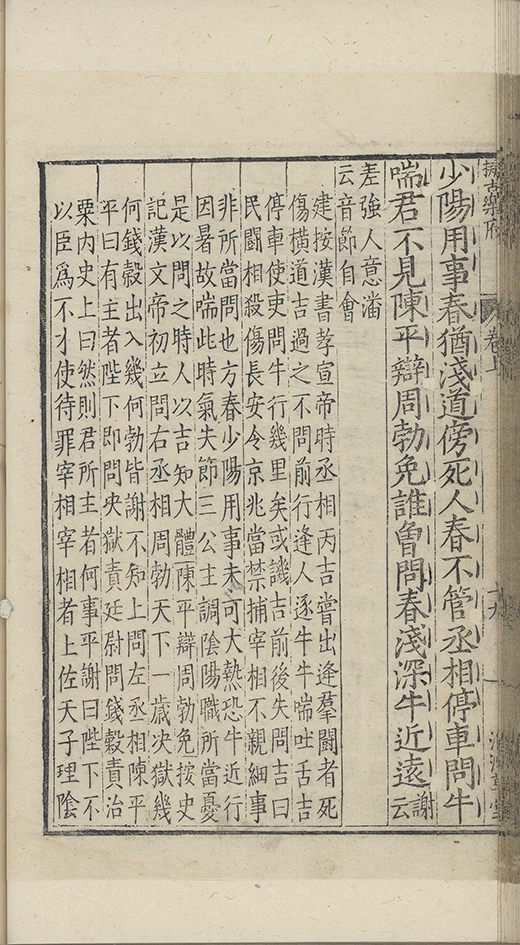 擬古樂府
卷上
少陽用事春猶淺道傍死人春不管丞相停車問牛
喘君不見陳平辯周勃免誰曾問春淺深牛近遠謝云
差強人意潘
云音節自會
建按漢書孝宣帝時丞相丙吉嘗出逢羣鬬者死
傷橫道吉過之不問前行逢人逐牛牛喘吐舌吉
停車使吏問牛行幾里矣或譏吉前後失問吉曰
民鬬相殺傷長安令京兆當禁捕宰相不親細事
非所當問也方春少陽用事未可大熱恐牛近行
因暑故喘此時氣失節三公主調陰陽職所當憂
是以問之時人以吉知大體陳平辯周勃免按史
記漢文帝初立問右丞相周勃天下一歲决獄幾
何錢穀出入幾何勃皆謝不知上問左丞相陳平
平曰有主者陛下即問决獄責廷尉問錢穀責治
粟內史上曰然則君所主者何事平謝曰陛下不
以臣爲不才使待罪宰相宰相者上佐天子理陰